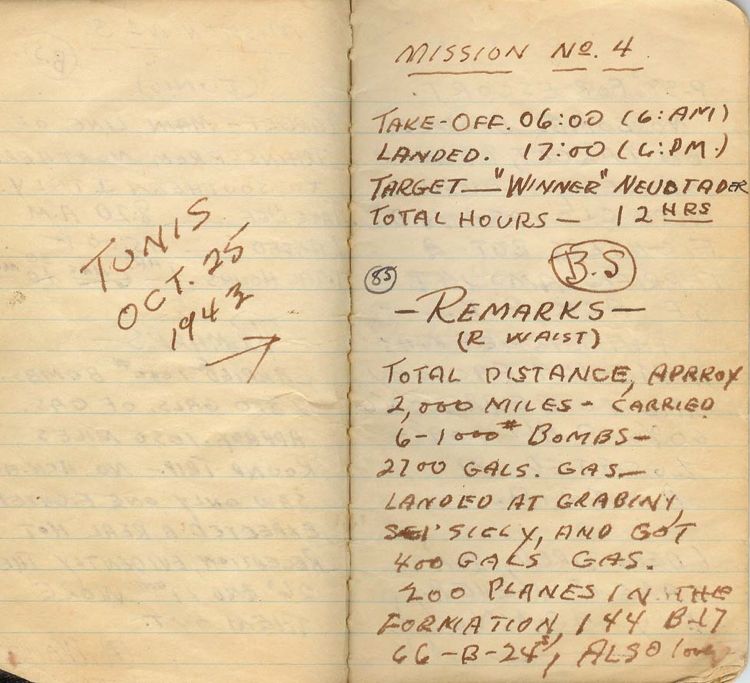 TUNIS
OCT. 25
1943
MISSION No. 4
TAKE-OFF. 06:00 (6:AM)
LANDED. 17:00 (6:PM.)
TARGET—"WINNER" NEUBTADER
TOTAL HOURS— 12 HRS
B.S
85
—REMARKS—
(R WAIST)
TOTAL DISTANCE, APRROX
2,000 MILES- CARRIED
6-1000# BOMBS-
2700 GALS. GAS—
LANDED AT GRABINY,
SICLY, AND GOT
400 GALS GAS.
200 PLANES IN THE
FORMATION, 144 B-17
66-B-24s, ALSO